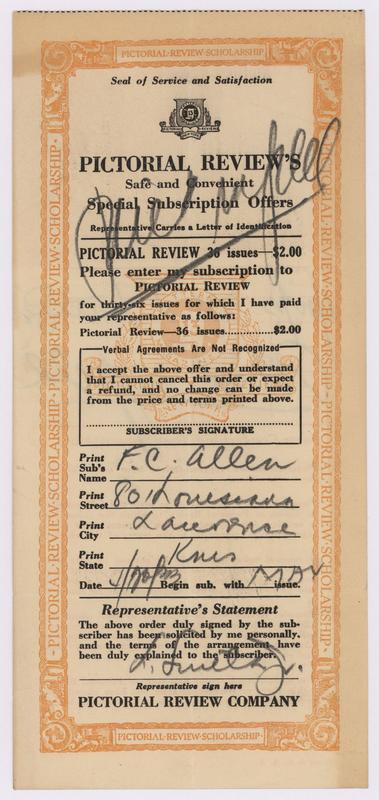 PICTORIAL·REVIEW·SCHOLARSHIP
Seal of Service and Satisfaction
PICTORIAL REVIEW'S
Safe and Convenient
Special Subscription Offers
Representative Carries a Letter of Identification
PICTORIAL REVIEW 36 issues—$2.00
Please enter my subscription to
PICTORIAL REVIEW
for thirty-six issues for which I have paid
your representative as follows:
Pictorial Review—36 issues..............$2.00
Verbal Agreements Are Not Recognized
I accept the above offer and understand
that I cannot cancel this order or expect
a refund, and no change can be made
from the price and terms printed above.
SUBSCRIBER'S SIGNATURE
Print
Sub's
Name F. C. Allen
Print
Street 801 Louisiana
Print
City Lawrence
Print
State Kans
Date Begin sub. with MAY issue.
Representative's Statement
The above order duly signed by the sub-
scriber has been solicited by me personally.
and the terms of the arrangement have
been duly explained to the subscriber.
Representative sign here
PICTORIAL REVIEW COMPANY
PICTORIAL·REVIEW·SCHOLARSHIP·
PICTORIAL·REVIEW·SCHOLARSHIP·PICTORIAL·REVIEW·SCHOLARSHIP·
PICTORIAL·REVIEW·SCHOLARSHIP·PICTORIAL·REVIEW·SCHOLARSHIP